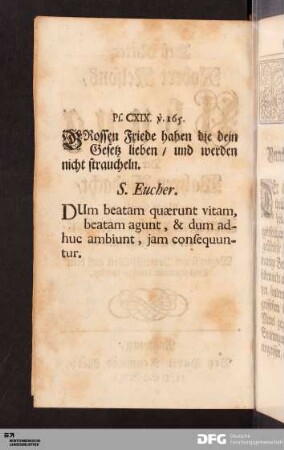 Pſ. CXIX. ỳ. 165.
GRoſſen Friede haben die dein
Geſetz lieben / und werden
nicht ſtraucheln.
S. Eucher.
DUm beatam quærunt vitam,
beatam agunt, & dum ad-
huc ambiunt, jam conſequun-
tur.
DFG
Deutsche
Forschungsgemeinschaft